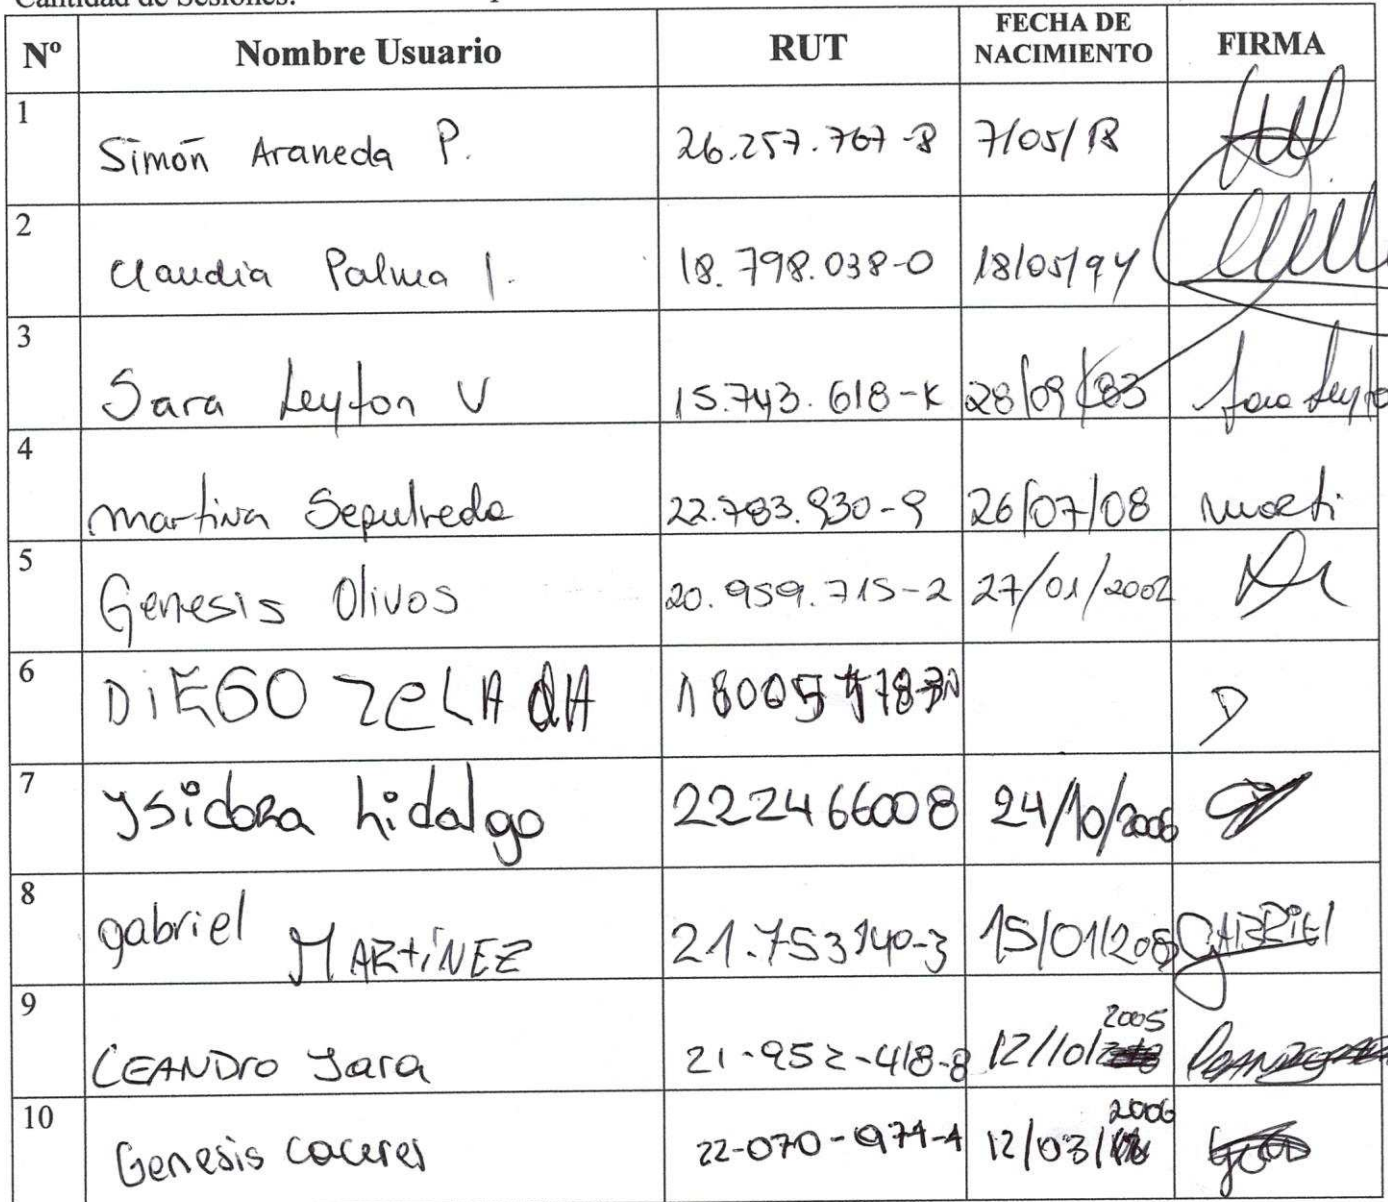 Cantidad de Sesiones:
Nº Nombre Usuario RUT FECHA DE NACIMIENTO FIRMA
1 Simón Araneda P. 26.257.767-8 7/05/18
2 Claudia Palma I. 18.798.038-0 18/05/94
3 Sara Leyton V 15.743.618-K 28/09/83 Sara Leyto
4 martina Sepulveda 22.783.930-9 26/07/08 marti
5 Genesis Olivos 20.959.715-2 27/01/2002
6 DiEGO ZeLAdA D
7 Ysidora hidalgo 222466008 24/10/2006
8 gabriel MARtíNEZ 21.753140-3 15/01/2005 GABRiEl
9 LEANDro Jara 21-952-418-8 12/10/2005
10 Genesis caceres 22-070-974-4 12/03/2006